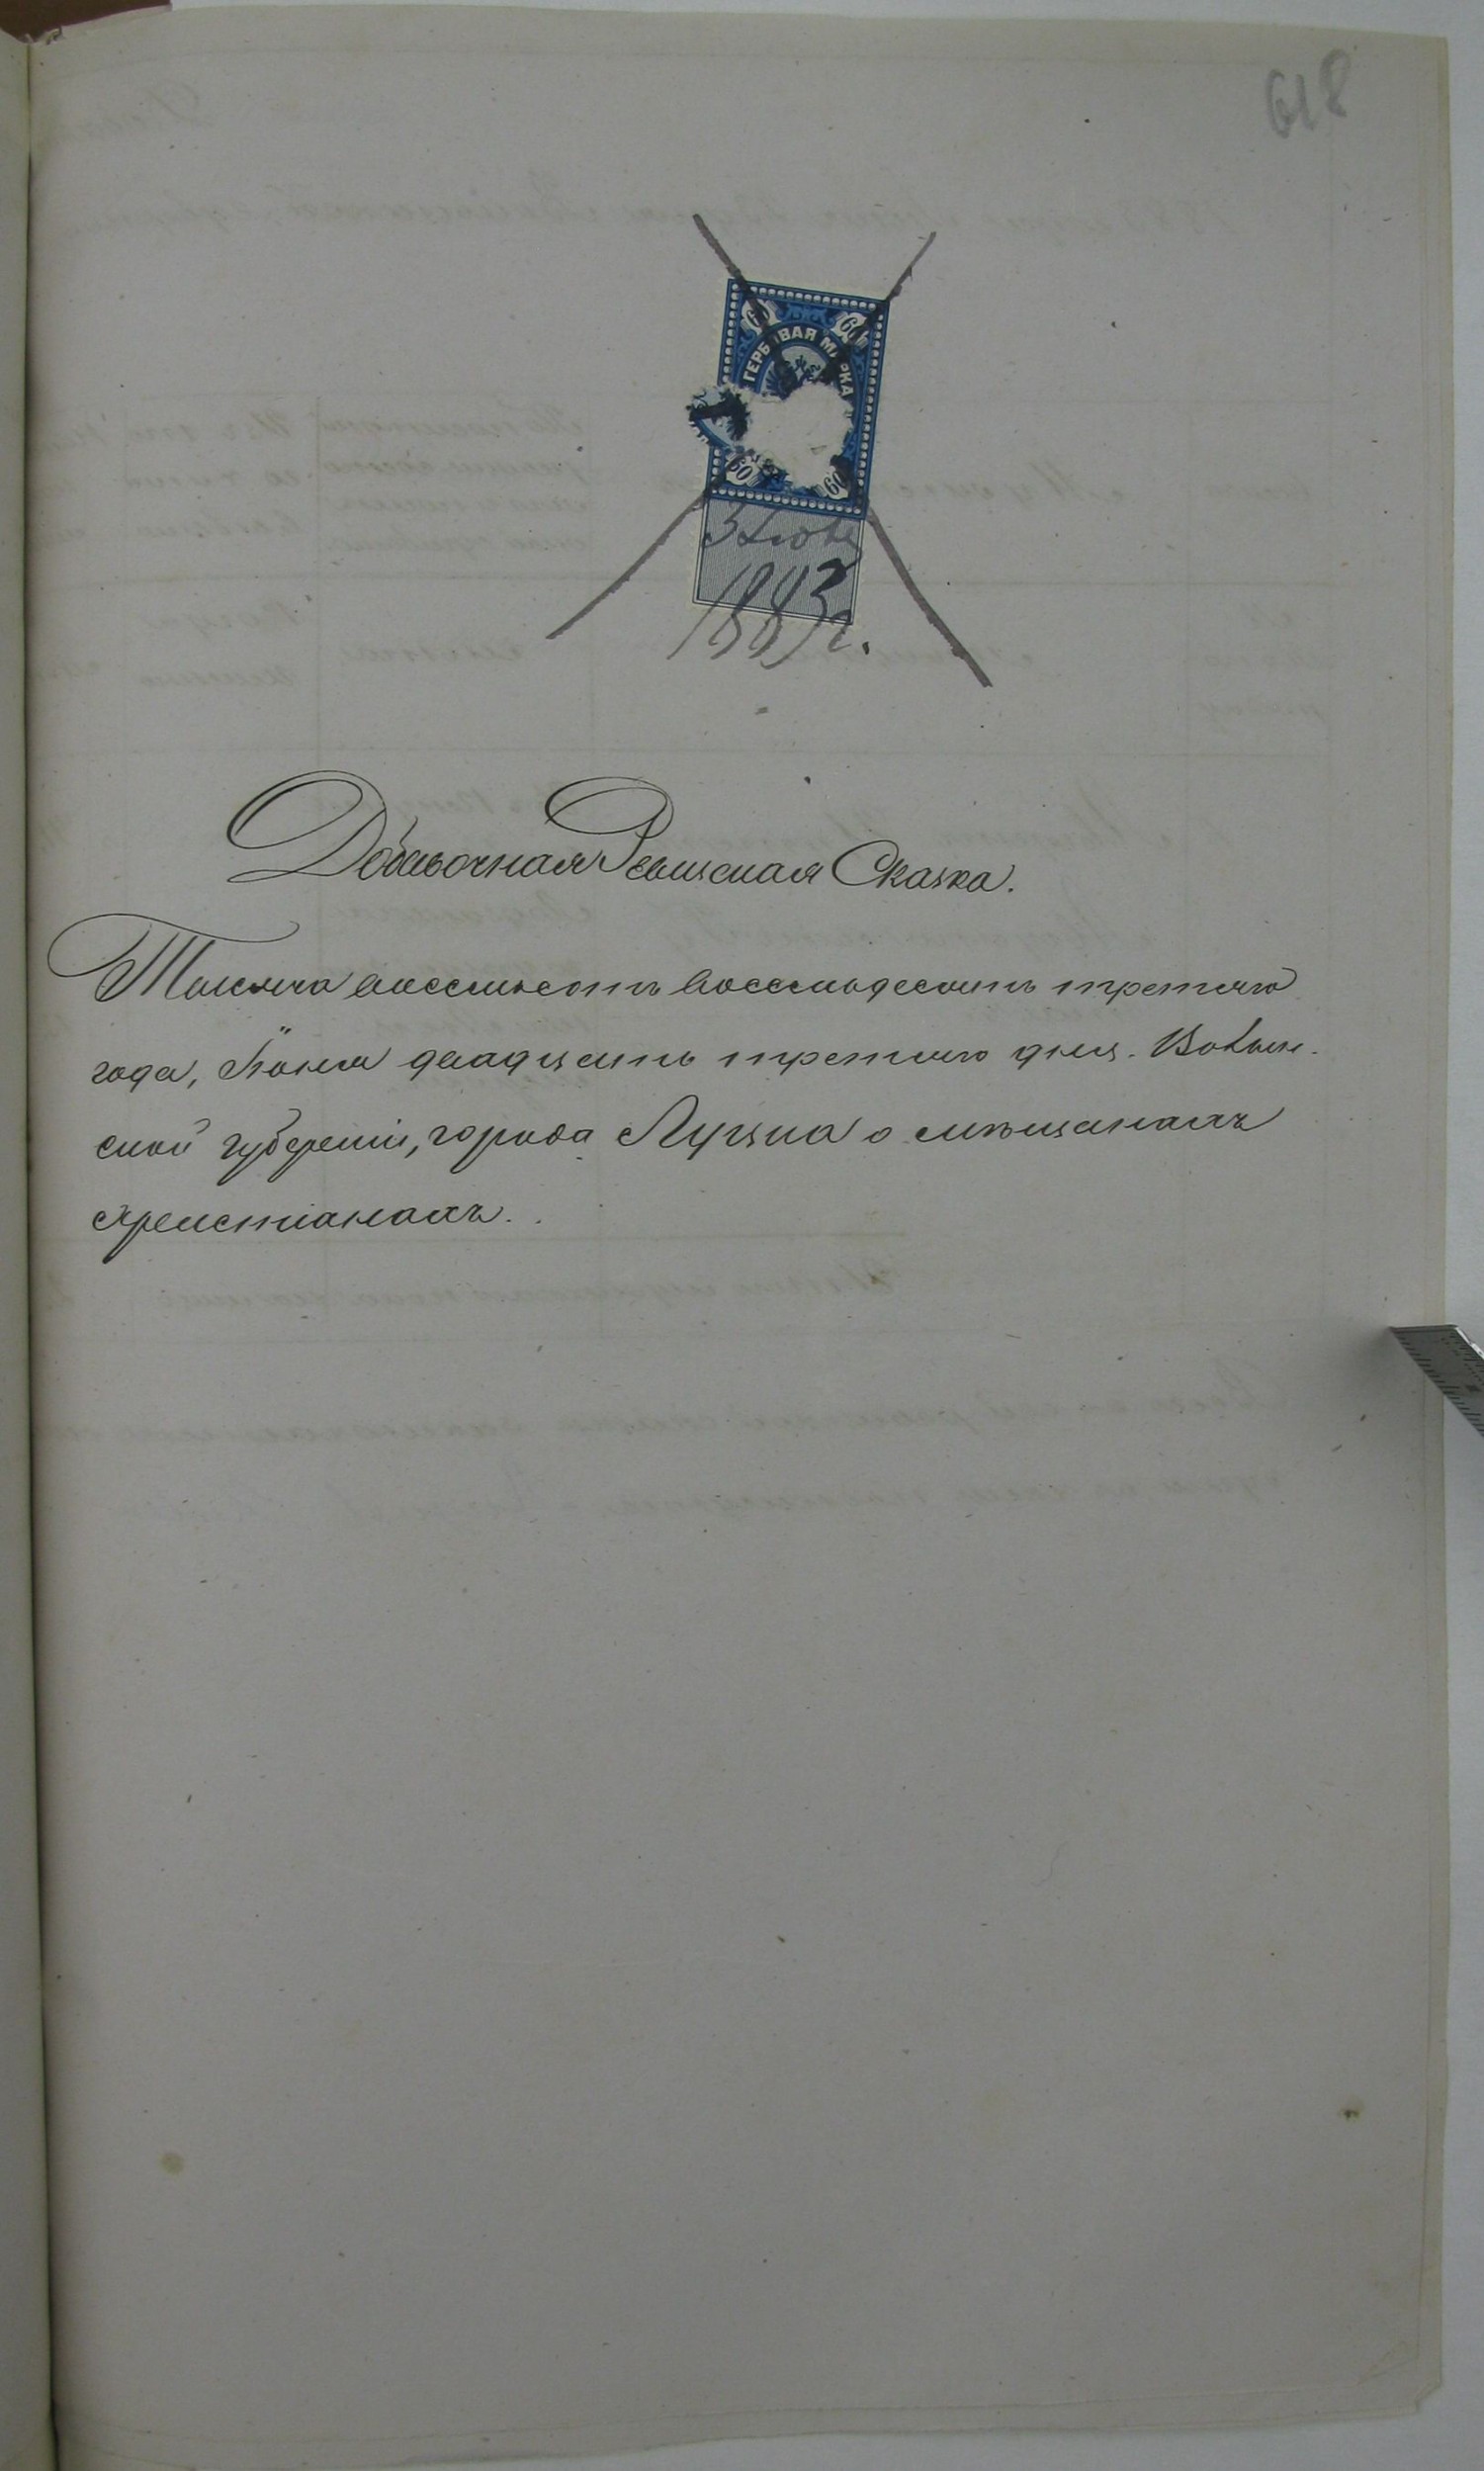 618
60 60
ГЕРБОВАЯ МАРКА
60 60
1883 г.
Добавочная Ревизская Сказка.
Тысяча восемьсотъ восемьдесятъ третьяго
года, Іюня двадцать третьяго дня. Волын-
ской губерніи, города Луцка о мѣщанахъ
христіанахъ.